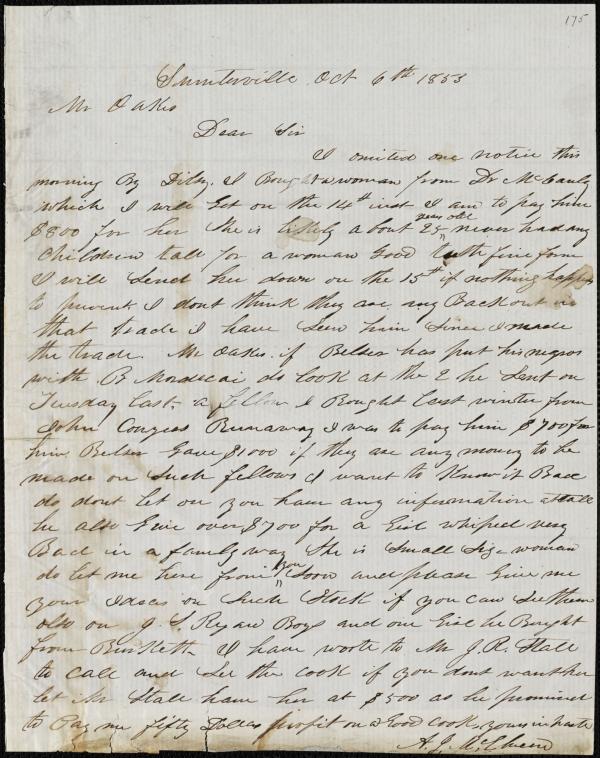 175
Sumterville Oct 6th 1853
Mr Oakes
Dear Sir
I omited one notice this
morning By Dilly. I Bought a woman from Dr McCauly
which I will Get on the 14th inst I am to pay him
$800 for her She is likely about 25 years old never had any
Children tall for a woman Good teeth fine form
I will Send her down on the 15th if nothing happens
to prevent I dont think they are any Back out in
that trade I have Seen him Since I made
the trade. Mr Oakes. if Belser has put his negros
with B Mordecai do look at the 2 he Sent on
Tuesday Last. a fellow I Bought Last winter from
John Congers Runaway I was to pay him $700 for
him Belser Gave $1000 if they are any money to be
made on Such fellows I want to Know it Bad
do dont let on you have any information attall
he also Give over $700 for a Girl whiped very
Bad in a family way She is Small Size woman
do let me here from you Soon and please Give me
your Ideas on Such Stock if you can See them
also on J. S. Ryan Boys and one Girl he Bought
from Burkett. I have wrote to Mr J. R. Stall
to call and See the cook if you dont want her
let Mr Stall have her at $500 as he promised
to Pay me fifty Dollars profit on a Good cook, yours in haste
A. J. McElveen